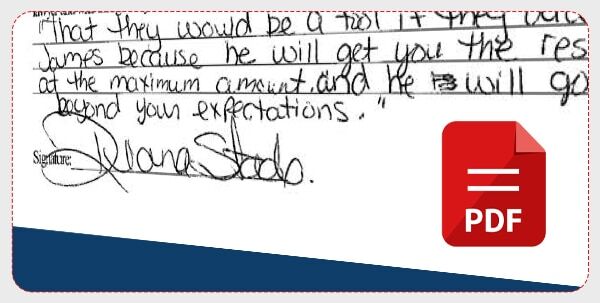 "That they would be a fool if they
James because he will get you the res
at the maximum amount. and he will go
beyond your expectations."
Signature:
PDF